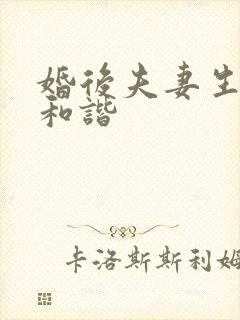 婚後夫妻生
和諧
卡洛斯斯利姆